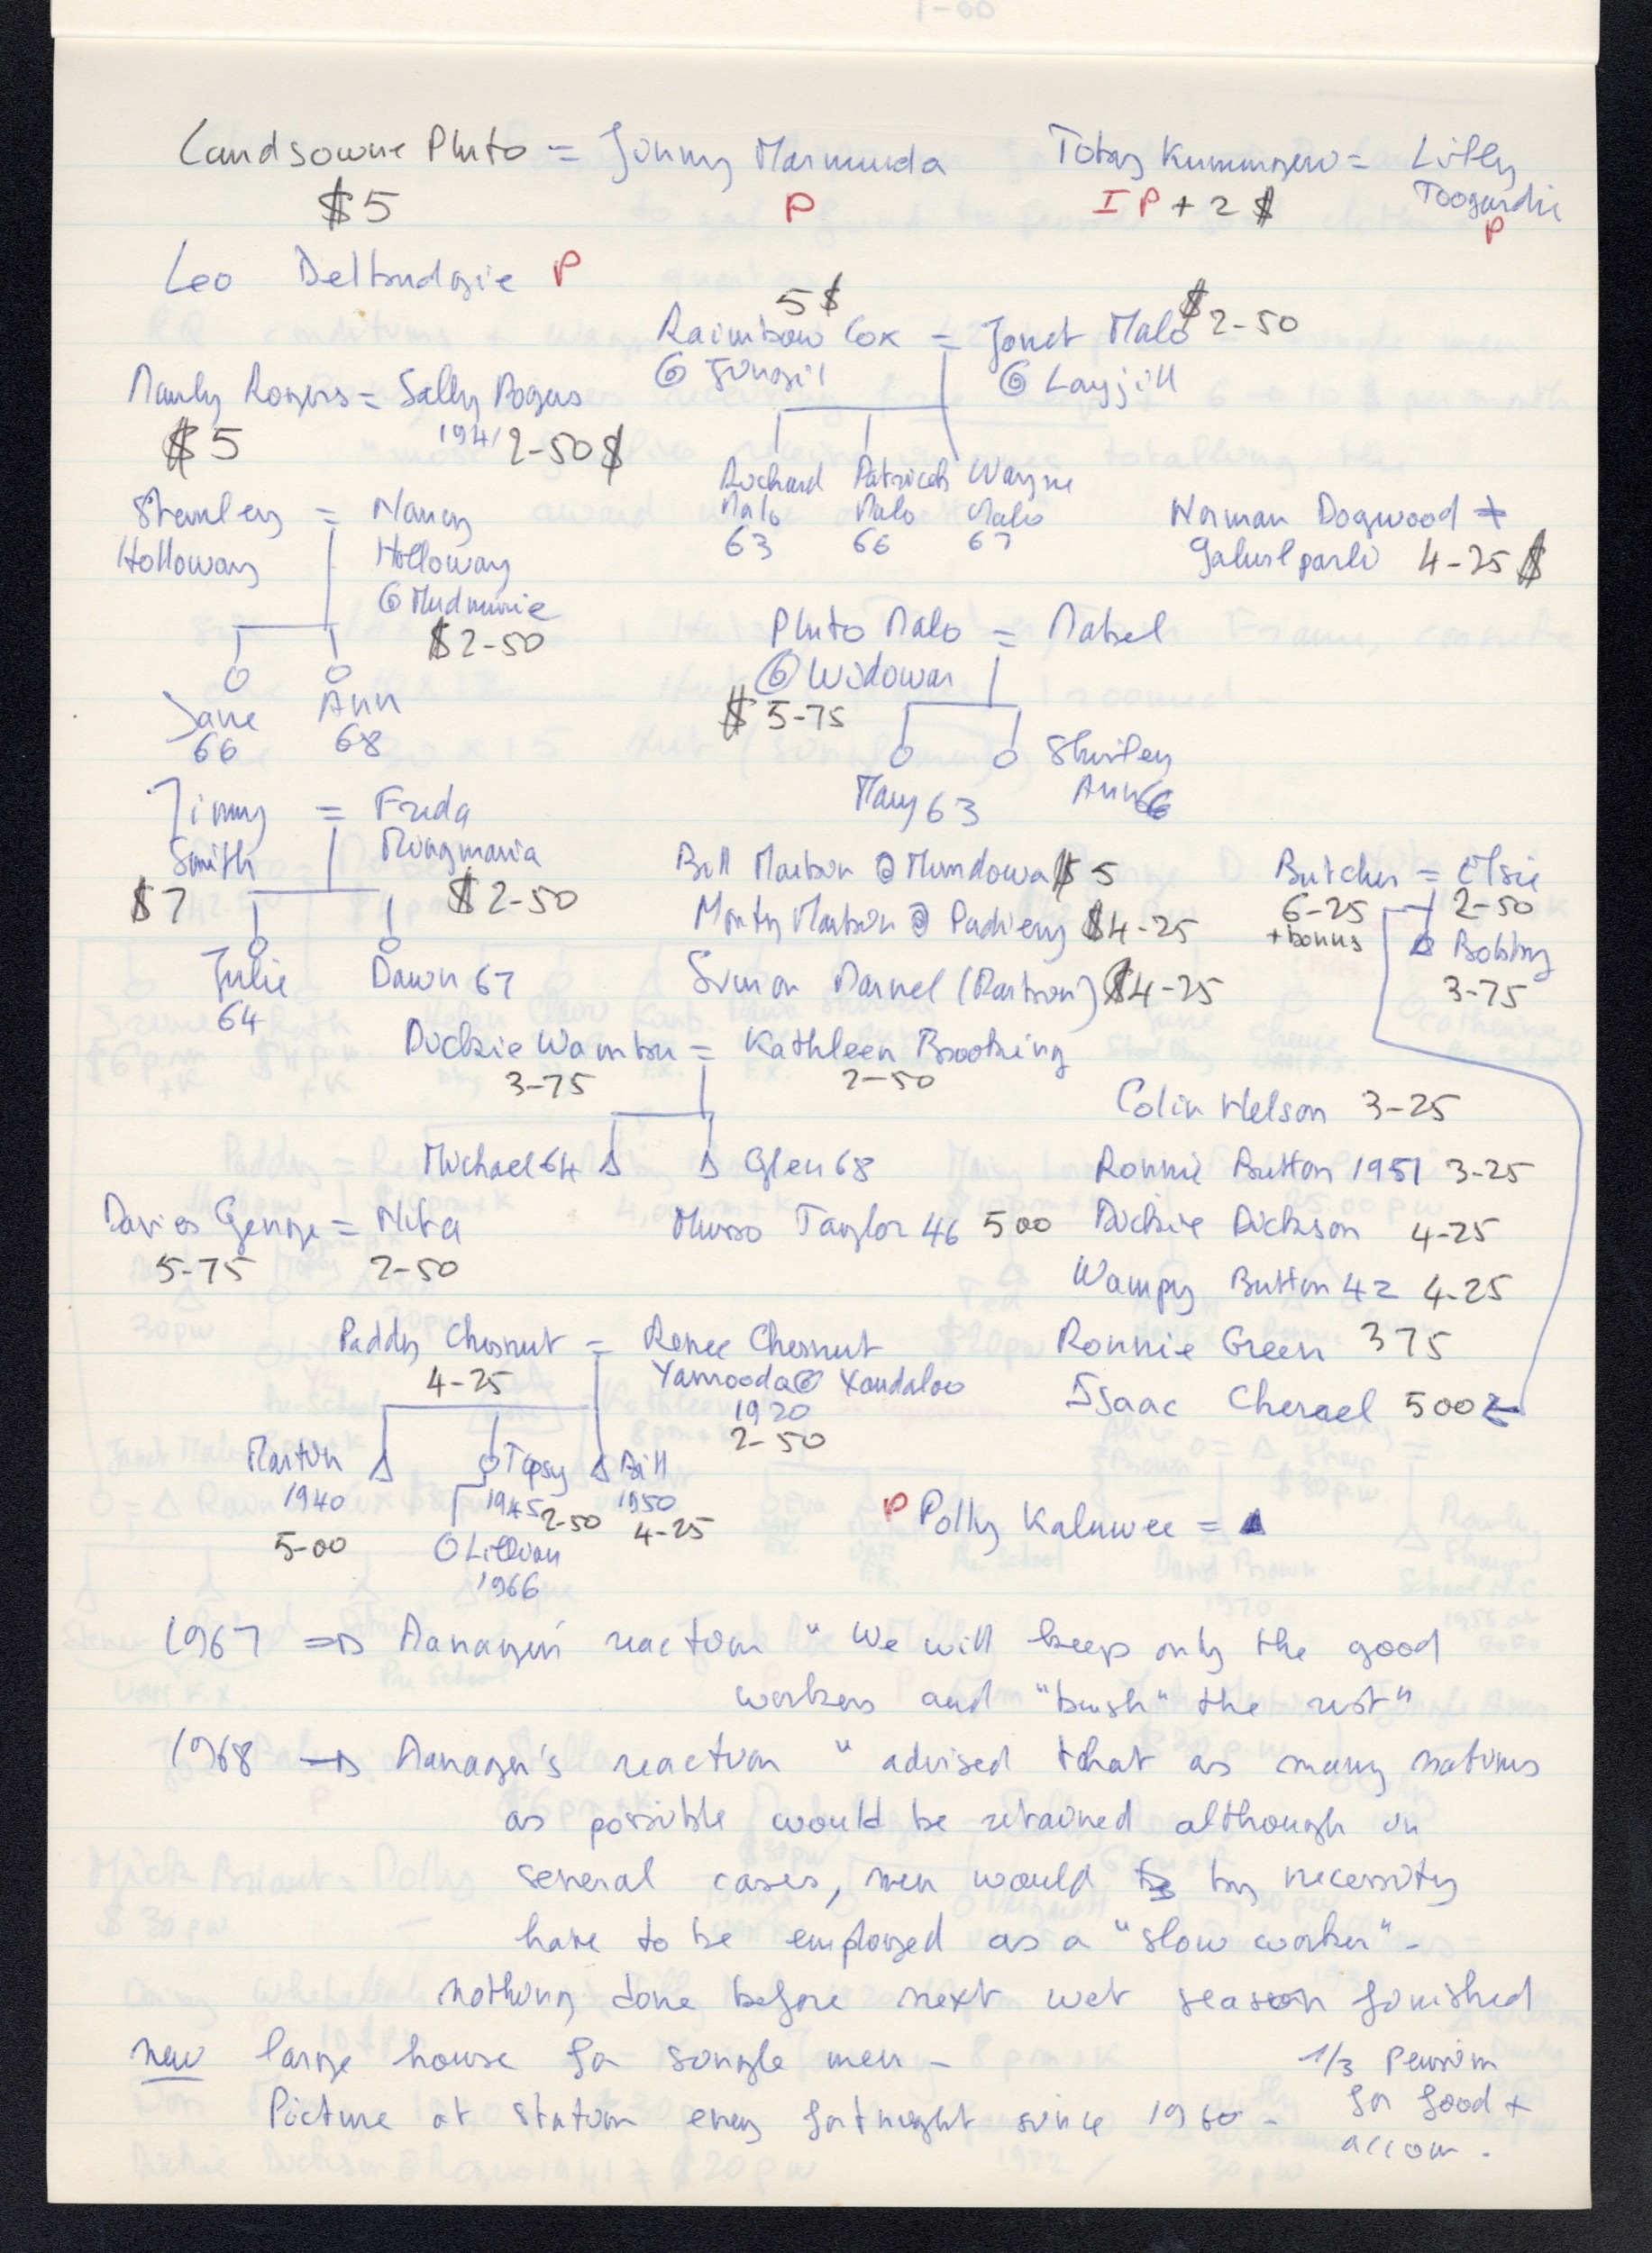 Landsowne Pluto = Jinny Marmunda
$5 P
Toby Kummyero = Lilly
IP + 2 $ Toogardie
P
Leo Delbudgie P
5$ $2-50
Rainbow Cox = Janet Malo
@ Jungil @ Layjill
Manly Rogers = Sally Rogers
$5 1941 2-50$
Richard Patricah Wayne
Malo Malo Malo
63 66 67
Stanley = Nancy
Holloway Holloway
@ Mudmurie
$2-50
Norman Dogwood ≠
4-25 $
Jane Ann
66 68
Pluto Malo = Mabel
@ Widowan
$ 5-75
Mary 63 Shirley
Ann 66
Jimmy = Freda
Smith Mingmaria
$7 $2-50
Julie Dawn 67
64
Bill Martin @ Mundowa $ 5
Monty Martin @ $4-25
Simon Marnel (Martin) $4-25
Butcher = Elsie
6-25 2-50
+ bonus Bobby
3-75
Dickie = Kathleen Brooking
3-75 2-50
Michael 64 Glen 68
Colin Nelson 3-25
Ronnie Button 1951 3-25
Davies George = Nita
5-75 2-50
Taylor 46 5 00
Dickie Dickson 4-25
Wampy Button 42 4-25
Ronnie Green 3 75
Isaac Cherael 5 00
Paddy Chesnut = Renee Chesnut
4-25 Yamooda @ Yandaloo
1920
2-50
Martin Topsy Bill
1940 1945 1950
5-00 2-50 4-25
Lillian
1966
P Polly Kaluwee =
1967 => Manager's reaction "We will keep only the good
workers and "bush" the rest"
1968 → Manager's reaction " advised that as many natives
as possible would be retained although in
several cases, men would by necessity
have to be employed as a "slow worker" -
nothing done before next wet season finished
new large house for single men -
Picture at station every fortnight since 1960 -
1/3 pension
for food +
accom.